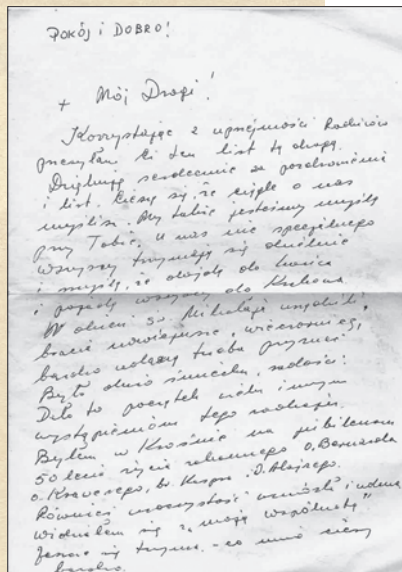 POKÓJ i DOBRO!
+ Mój Drogi!
Korzystając z uprzejmości Rodziców
przesyłam Ci ten list tą drogą.
Dziękuję serdecznie za pozdrowienia
i list. Cieszę się, że ciągle o nas
myślisz. My także jesteśmy myślą
przy Tobie. U nas nic specjalnego
wszyscy trzymają się dzielnie
i myślę, że dojdą do końca
i pojadą wszyscy do Krakowa.
W dzień św. Mikołaja urządzili
bracia nowicjusze, wieczornicę,
bardzo udaną trzeba przyznać
Było dużo śmiechu, radości.
Dało to początek wielu innym
wystąpieniom tego rodzaju.
Byłem w Krośnie na jubileuszu
50 lecia życia zakonnego O. Bernarda
o. Ksawerego, br. Kaspra i O. Alojzego.
Również uroczystość
widziałem się z "moją wspólnotą"
Jeszcze się trzyma - co mnie cieszy
bardzo.